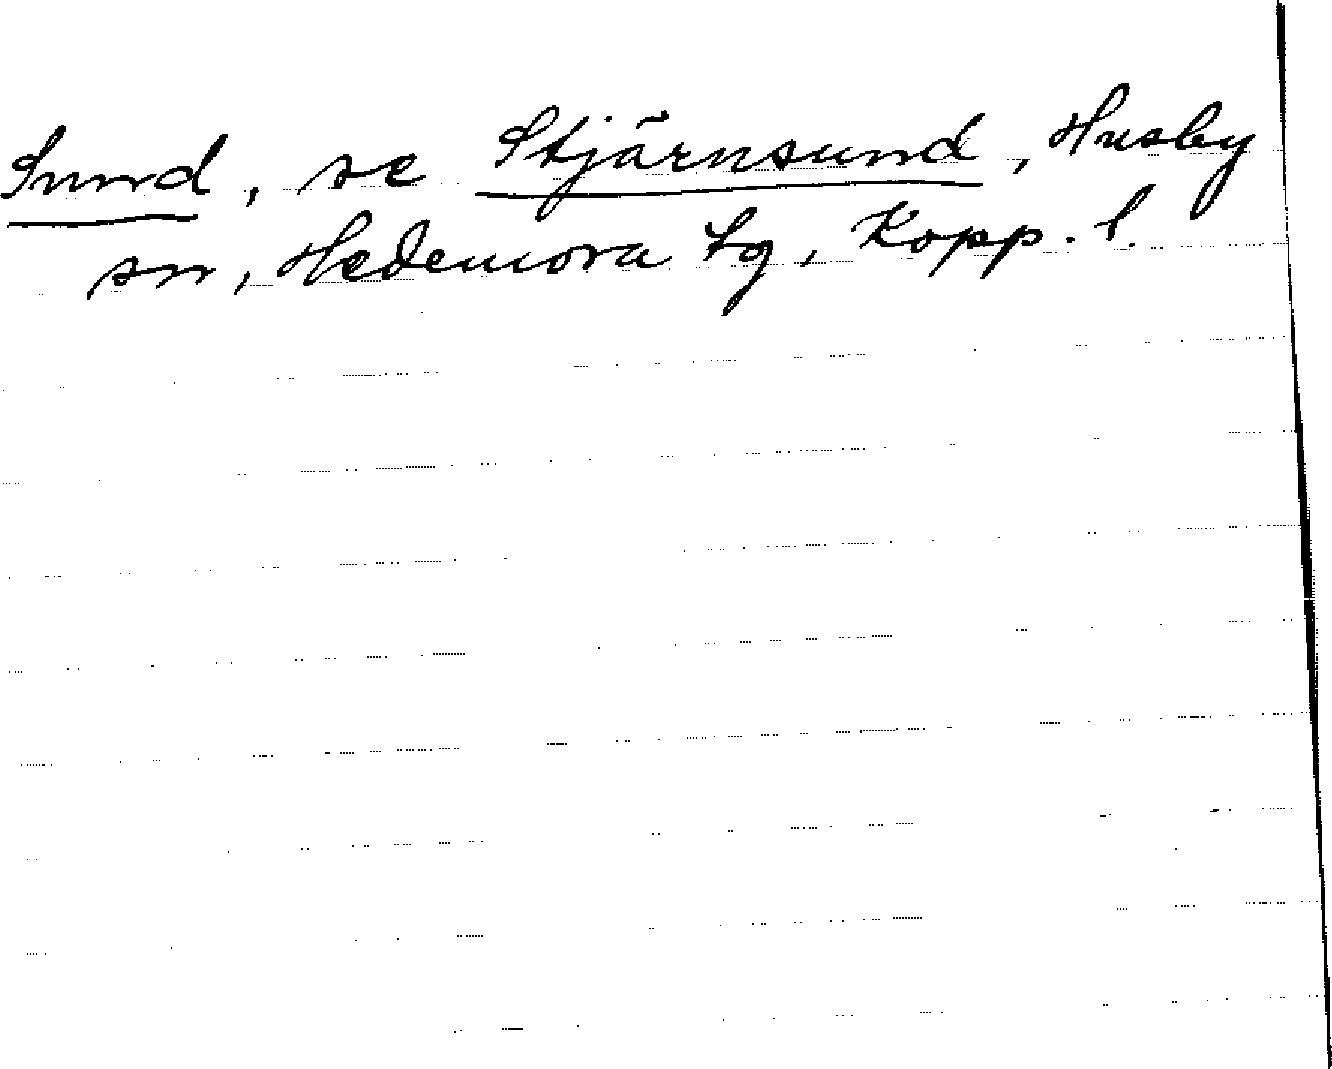 Sund, se Stjärnsund, Husby
sn, Hedemora tg, Kopp. l.